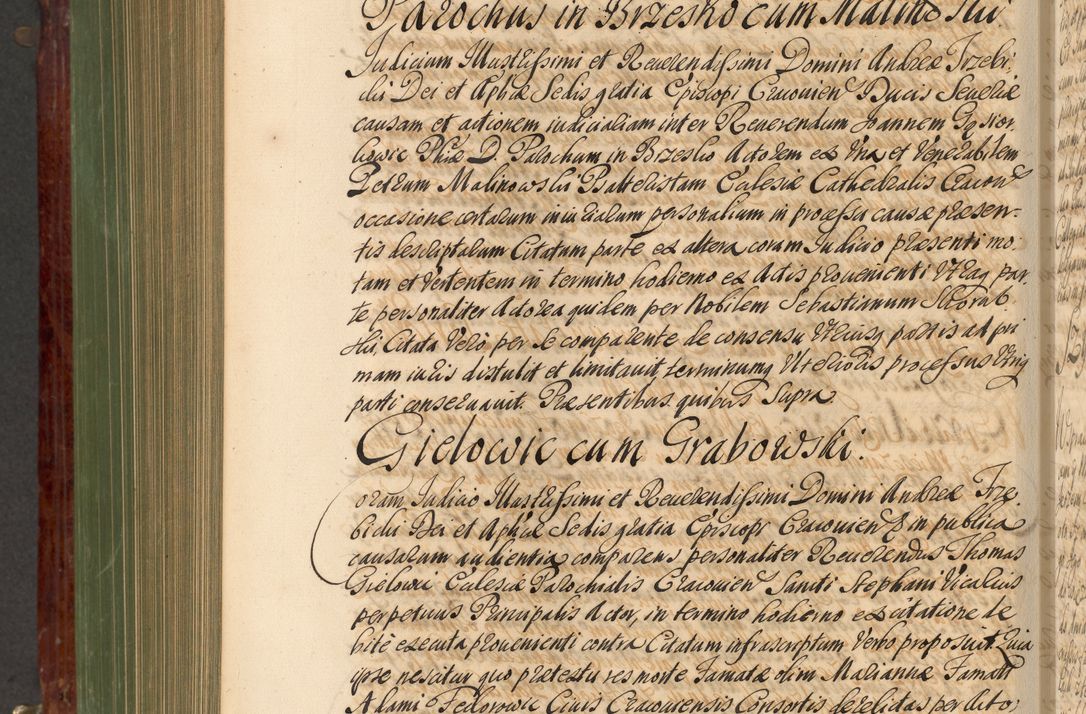 Parochus in Brzesko cum Malinowski
Judicium Illustrissimi et Reuerendissimi Domini Andreæ Trzebi
cki Dei et Apłicæ Sedis gratia Episcopi Cracouien Ducis Seueriæ
causam et actionem iudicialiam inter Reuerendum Joannem Gąsior
kowic Phiæ D. Parochum in Brzesko Actorem ex vna et Venerabilem
Petrum Malinowski Psalteristam Ecclesiæ Cathedralis Cracou
occasione certarum iniuriarum personalium in processu causæ præsen-
tis descriptarum Citatum parte ex altera coram Judicio præsenti mo
tam et vertentem in termino hodierno ex Actis prouenienti vtraq par
te personaliter Actorea quidem per Nobilem Sebastianum Skorab
ski, Citata vero per se comparente de consensu vtriusq partis ad pri
mam iuris distulit et limitauit terminumq vlterioris processus vtriq
parti conseruauit. Præsentibus quibus supra
Gielowic cum Grabowski.
Coram Judicio Illustrissimi et Reuerendissimi Domini Andreæ Trze
bicki Dei et Apłicæ Sedis gratia Episcopi Cracouien & in publica
causarum audientia comparens personaliter Reuerendus Thomas
Gielowic Ecclesiæ Parochialis Cracouien Sancti Stephani Vicarius
perpetuus Principalis Actor, in termino hodierno ex citatione de
bite executa prouenienti contra Citatum infrascriptum verbo proposuit. Quia
ipse nescitur quo prætextu res morte Famatæ olim Mariannæ Famati
Adami Fedorowic Ciuis Cracouiensis Consortis derelictas per Acto